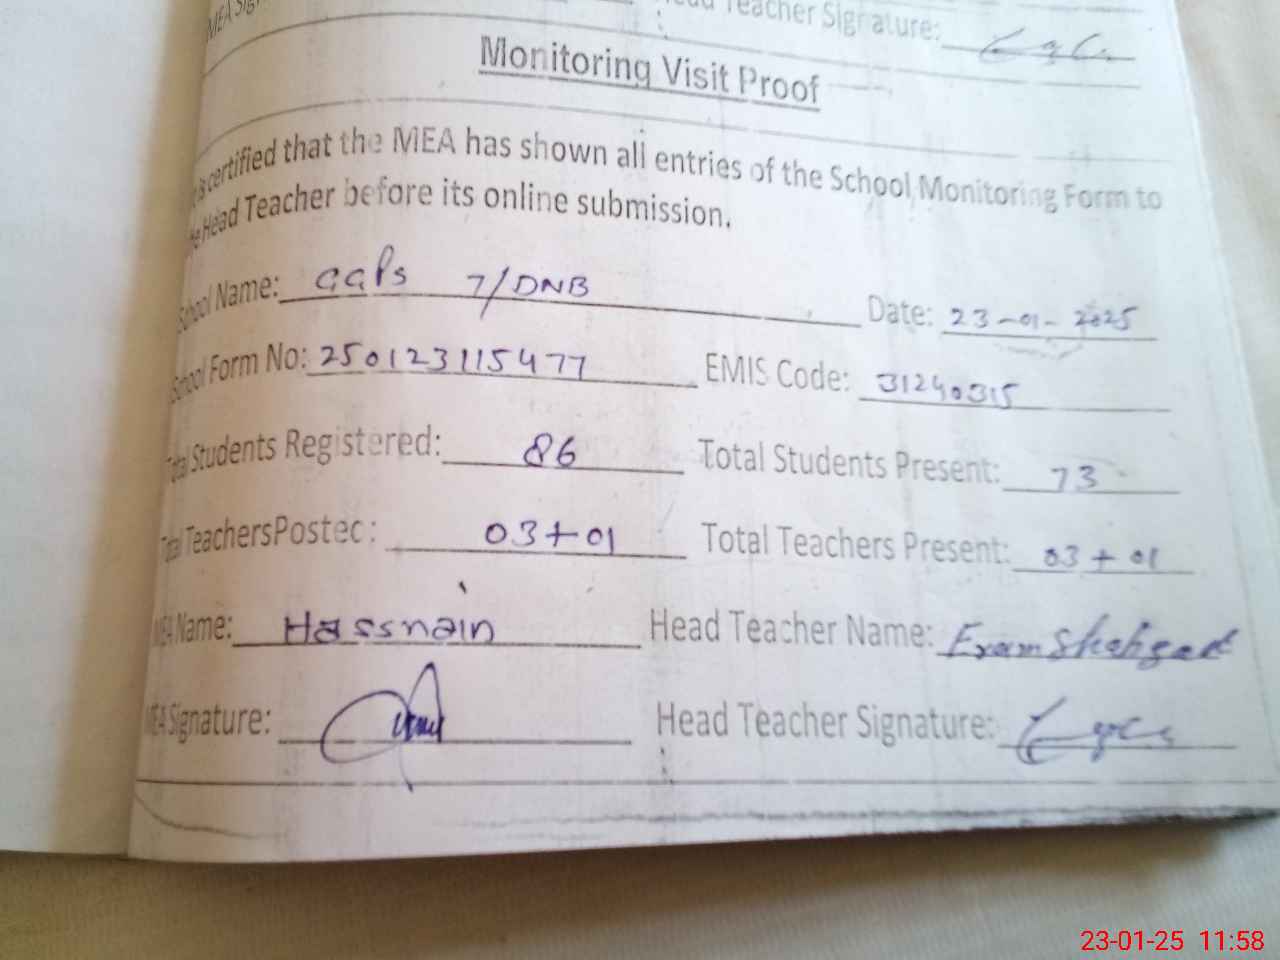 MEA Sig
ead Teacher Signature:
Monitoring Visit Proof
is certified that the MEA has shown all entries of the School Monitoring Form to
he Head Teacher before its online submission.
School Name: GGPS 7/DNB Date: 23-01-2025
School Form No: 250123115477 EMIS Code: 31240315
Total Students Registered: 86 Total Students Present: 73
Total TeachersPostec: 03+01 Total Teachers Present: 03+01
MEA Name: Hassnain Head Teacher Name: Eram Shahzad
MEA Signature: Head Teacher Signature:
23-01-25 11:58